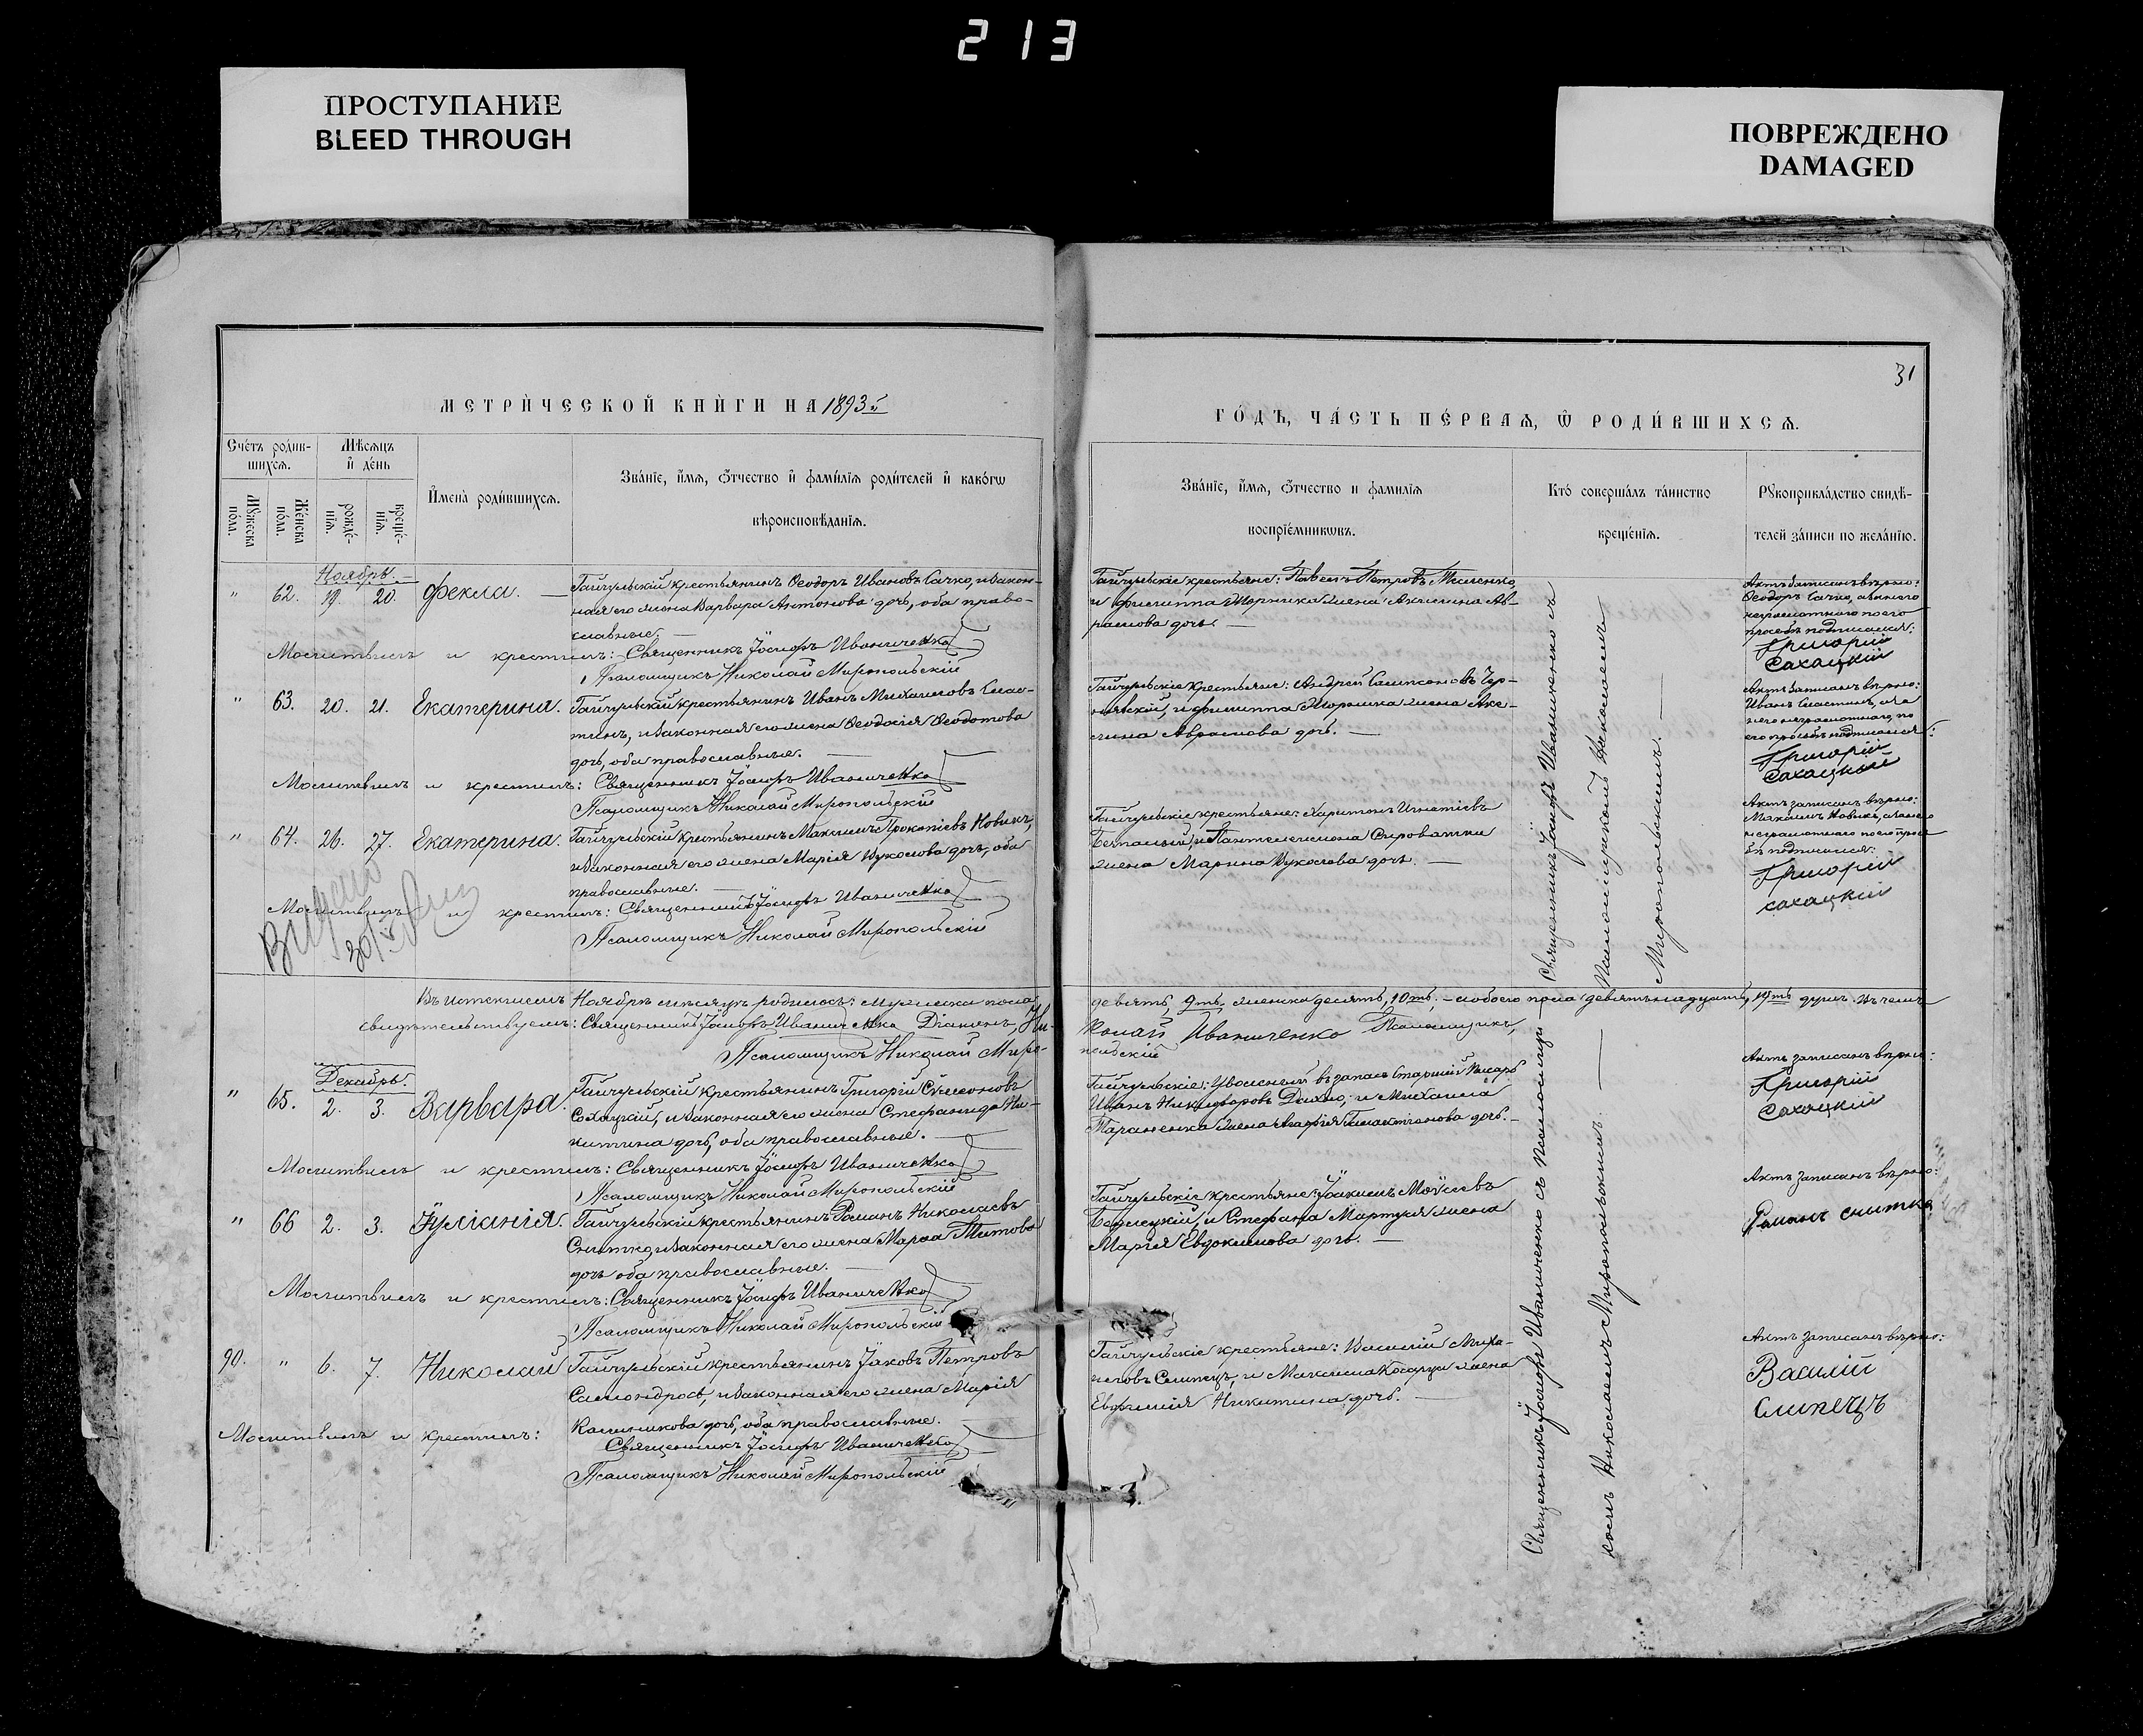 213
ПРОСТУПАНИЕ
BLEED THROUGH
ПОВРЕЖДЕНО
DAMAGED
31
МЕТРИ́ЧЕСКОЙ КНИ́ГИ НА 1893й
ГО́ДЪ, ЧА́СТЬ ПЕ́РВАѦ, Ѿ РОДИ́ВШИХСѦ.
Сче́тъ роди́в-
шихсѧ.
Мѣ́сѧцъ
и҆ де́нь
Мꙋ́жеска по́ла.
Же́нска по́ла.
рожде́-
нїѧ.
креще́-
нїѧ.
И҆мена̀ роди́вшихсѧ.
Зва́нїе, и҆́мѧ, ѻ҆́тчество и҆ фами́лїѧ роди́телей и҆ како́гѡ
вѣроисповѣ́данїѧ.
Зва́нїе, и҆́мѧ, ѻ҆́тчество и фамилїѧ
воспрїе́мникѡвъ.
Кто̀ соверша́лъ та́инство
креще́нїѧ.
Рꙋкоприкла́дство свидѣ́-
телей за́писи по жела́нїю.
Ноябрь.
" 62. 19. 20. Фекла. — Гайчульскій крестьянинъ Ѳеодоръ Ивановъ Сачко, и закон-
ная его жена Варвара Антонова дочь, оба право-
славные. —
Молитвилъ и крестилъ: Священникъ Іосифъ Иваниченко
Псаломщикъ Николай Миропольскій
Гайчульскіе крестьяне: Павелъ Петровъ
и Филиппа жена Акилина Ав-
рамова дочь. —
Актъ записанъ вѣрно:
Ѳеодоръ Сачко, а за него
неграмотнаго по его
просьбѣ подписался:
Григорій
Сахацкій
" 63. 20. 21. Екатерина. Гайчульскій крестьянинъ Иванъ Михаиловъ Слас-
тинъ, и законная его жена Ѳеодосія Ѳеодотова
дочь, оба православные. —
Молитвилъ и крестилъ: Священникъ Іосифъ Иваниченко
Псаломщикъ Николай Миропольскій
Гайчульскіе крестьяне: Андрей
и Филиппа жена Аки-
лина Аврамова дочь. —
Актъ записанъ вѣрно:
Иванъ Сластинъ, а за
него неграмотнаго, по
его просьбѣ подписался:
Григорій
Сахацкій
" 64. 26. 27. Екатерина. Гайчульскій крестьянинъ Максимъ Прокопіевъ Новикъ,
и законная его жена Марія Вуколова дочь, оба
православные. —
Молитвилъ и крестилъ: Священникъ Іосифъ Иваниченко
Псаломщикъ Николай Миропольскій
Гайчульскіе крестьяне: Харитонъ Игнатіевъ
и Пантелеимона Сироватки
жена Марина Вуколова дочь. —
Актъ записанъ вѣрно:
Максимъ Новикъ, а за него
неграмотнаго по его прось-
бѣ подписался:
Григорій
Сахацкій
Священникъ Іосифъ Иваниченко съ
Псаломщикомъ Николаемъ
Миропольскимъ. —
Въ истекшемъ Ноябрѣ мѣсяцѣ родилось: мужеска пола
девять, 9ть, женска десять, 10ть, — обоего пола девятьнадцать, 19ть душъ. Въ чемъ
свидѣтельствуемъ: Священникъ Іосифъ Иваниченко Діаконъ Ни-
колай Иваниченко Псаломщикъ,
Псаломщикъ Николай Миро-
польскій
Декабрь.
" 65. 2. 3. Варвара. Гайчульскій крестьянинъ Григорій Сѵмеоновъ
Сахацкій, и законная его жена Стефанида Ни-
китина дочь, оба православные. —
Молитвилъ и крестилъ: Священникъ Іосифъ Иваниченко
Псаломщикъ Николай Миропольскій
Гайчульскіе: Уволенный въ запасъ Старшій Писарь
Иванъ Никифоровъ и Михаила
Тараненка жена Агафія дочь. —
Актъ записанъ вѣрно:
Григорій
Сахацкій
" 66 2. 3. Іуліанія. Гайчульскій крестьянинъ Романъ Николаевъ
Снитко, и законная его жена Марѳа Титова
дочь оба православные. —
Молитвилъ и крестилъ: Священникъ Іосифъ Иваниченко
Псаломщикъ Николай Миропольскій
Гайчульскіе крестьяне: Іоакимъ Моѵсеевъ
и Стефана жена
Марія Евдокимова дочь. —
Актъ записанъ вѣрно:
Романъ Снитко
90. " 6. 7. Николай Гайчульскій крестьянинъ Іаковъ Петровъ
и законная его жена Марія
Калиникова дочь, оба православные. —
Молитвилъ и крестилъ: Священникъ Іосифъ Иваниченко
Псаломщикъ Николай Миропольскій
Гайчульскіе крестьяне: Василій Миха-
иловъ Слипецъ, и Максима жена
Евфимія Никитина дочь. —
Актъ записанъ вѣрно:
Василій
Слипецъ
Священникъ Іосифъ Иваниченко съ Псаломщи-
комъ Николаемъ Миропольскимъ. —